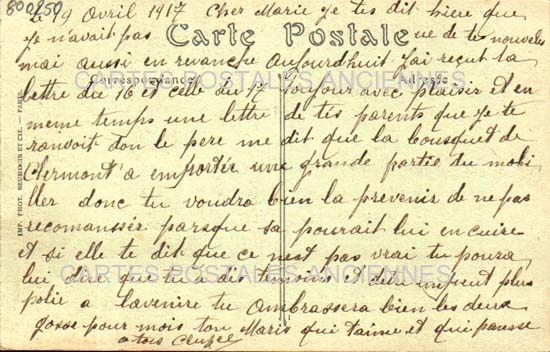 800250
Le 19 Avril 1917 Cher Marie je tes dit hiere que
je n'avait pas Carte Postale ue de tes nouveles
mai aussi en revanche aujourdhuit jai reçut ta
Correspondance Adresse
lettre du 16 et celle du 17 Toujour avec plaisir et en
meme temps une lettre de tes parents que je te
ranvoit don le pere me dit que la bousquet de
Clermont a emportér une grande partie du mobi
ller donc tu voudra bien la prevenir de ne pas
recomanssér parsque sa pourait lui en cuire
et si elle te dit que ce nest pas vrai tu poura
lui dire que tu a dis temoins et dètre un peut plus
polie a lavenire tu ambrassera bien les deux
gosse pour mois ton Maris qui t'aime et qui pansse
a tois Cluzel
IMP. PHOT. NEURDEIN ET CIE. — PARIS
CARTES POSTALES ANCIENNES
CARTES POSTALES ANCIENNES
CARTES POSTALES ANCIENNES